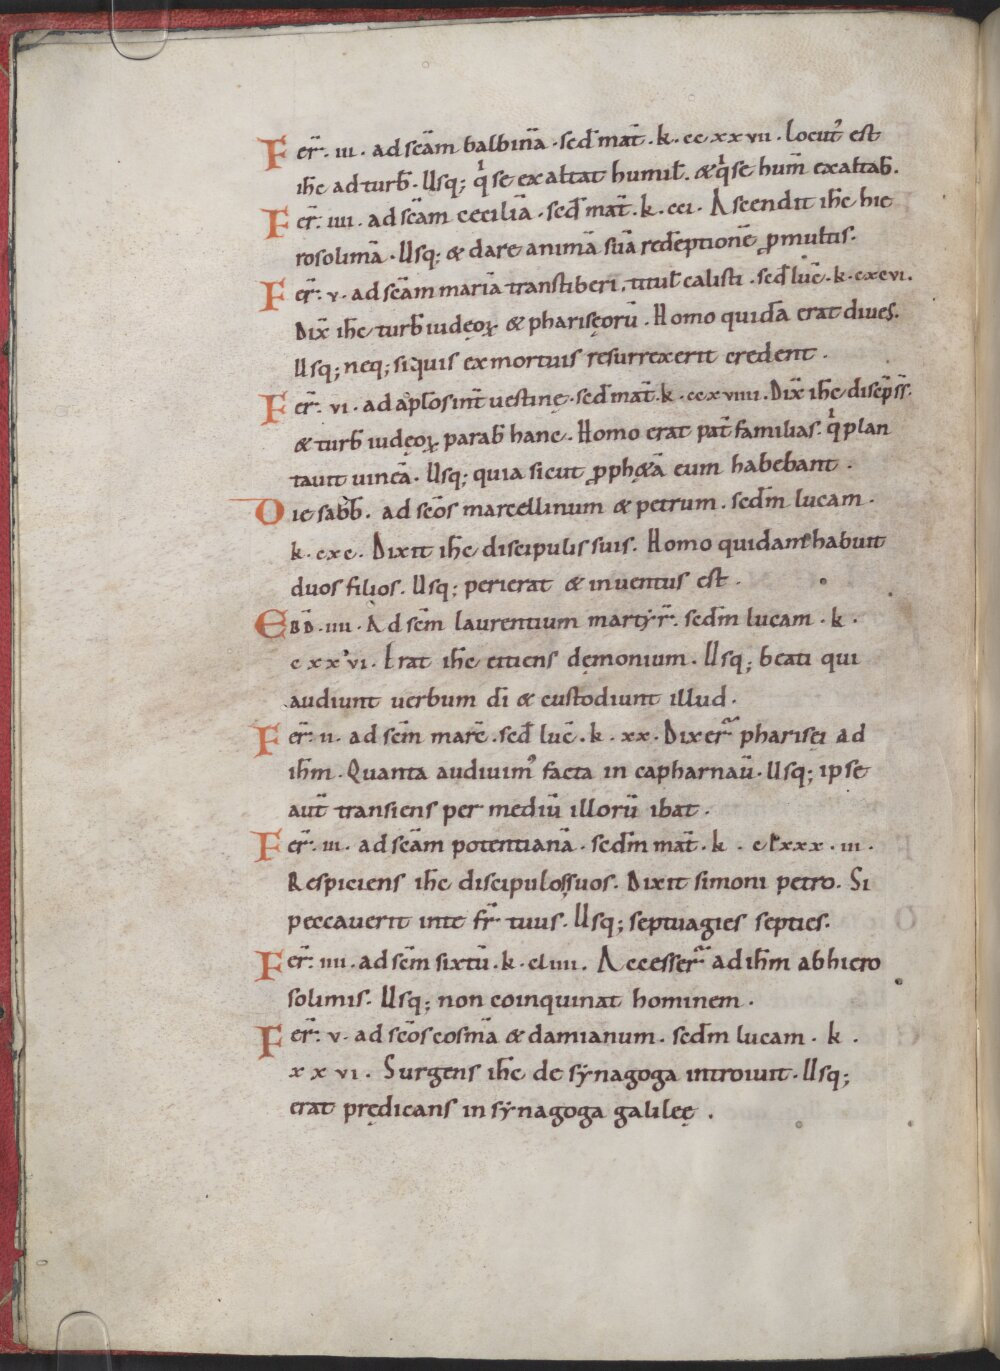 Fer̄. iii. ad sc̄am balbinā. sed̄ mat̄. k. ccxxvii. Locut᾽ est
ih̄c ad turb̄. Usq; qͥ se exaltat humil̄. & qͥ se hum̄ exaltab̄.
Fer̄. iiii. ad sc̄am ceciliā. sed̄ mat̄. k. cci. Ascendit ih̄c hie
rosolimā. Usq; & dare animā suā redēptionē ꝓ multis.
Fer̄. v. ad sc̄am mariā transtiberi, titul̄ calisti. sed̄ luc̄. k. cxcvi.
Dix̄ ih̄c turb̄ iudęoꝝ & pharisęorū. Homo quidā erat dives.
Usq; neq; si quis ex mortuis resurrexerit credent.
Fer̄. vi. ad apl̄os int̄ uestinę. sed̄ mat̄. k. ccxviiii. Dix̄ ih̄c discip̄ s̄s̄.
& turb̄ iudęoꝝ parab̄ hanc. Homo erat pat̄ familias. qͥ plan
tauit uineā. Usq; quia sicut ꝓph&ā eum habebant.
Die sabb̄. ad sc̄os marcellinum & petrum. sed̄m lucam.
k. cxc. Dixit ih̄c discipulis suis. Homo quidam habuit
duos filios. Usq; perierat & inuentus est.
Ebd̄. iiii. Ad sc̄m laurentium martẏr̄. sed̄m lucam. k.
cxxvi. Erat ih̄c eiciens demonium. Usq; beati qui
audiunt uerbum dī & custodiunt illud.
Fer̄. ii. ad sc̄m marc̄. sed̄ luc̄. k. xx. Dixer̄ pharisei ad
ih̄m. Quanta audiuim᾽ facta in capharnaū. Usq; ipse
aut̄ transiens per mediū illorū ibat.
Fer̄. iii. ad sc̄am potentianā. sed̄m mat̄. k. clxxx. iii.
Respiciens ih̄c discipulos suos. Dixit simoni petro. Si
peccauerit in te fr̄ tuus. Usq; septuagies septies.
Fer̄. iiii. ad sc̄m sixtū. k. cliiii. Accesser̄ ad ih̄m ab hiero
solimis. Usq; non coinquinat hominem.
Fer̄. v. ad sc̄os cosmā & damianum. sed̄m lucam. k.
xxvi. Surgens ih̄c de sẏnagoga introiuit. Usq;
erat prędicans in sẏnagoga galileę.